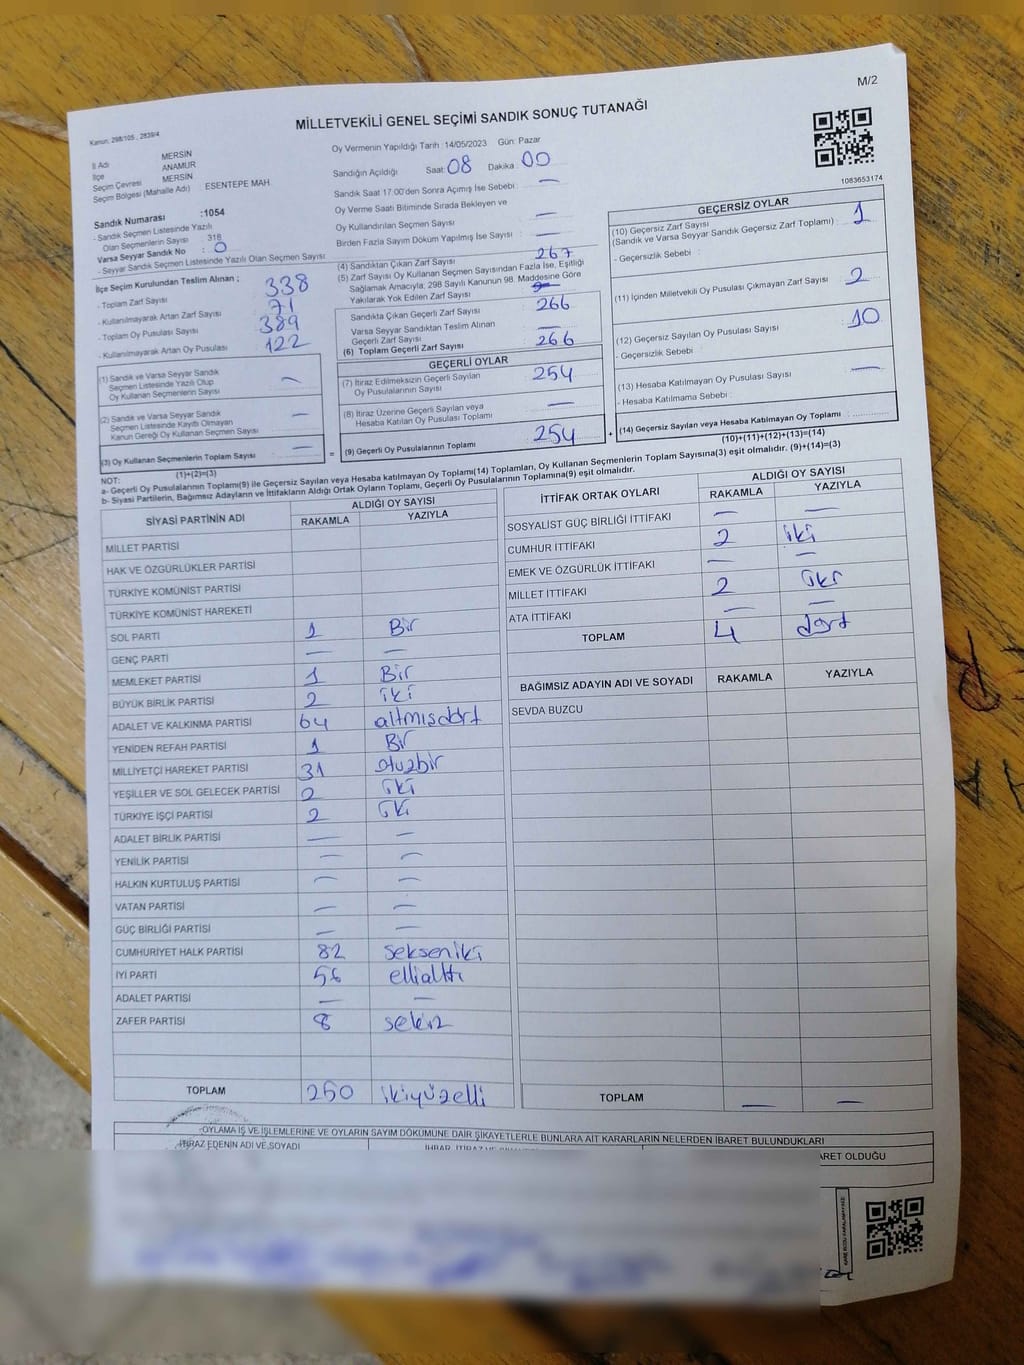 M/2
Kanun: 298/105 , 2839/4
MİLLETVEKİLİ GENEL SEÇİMİ SANDIK SONUÇ TUTANAĞI
İl Adı MERSİN
İlçe ANAMUR
Seçim Çevresi MERSİN
Seçim Bölgesi (Mahalle Adı) ESENTEPE MAH.
Sandık Numarası :1054
- Sandık Seçmen Listesinde Yazılı
Olan Seçmenlerin Sayısı : 318
Varsa Seyyar Sandık No : 0
- Seyyar Sandık Seçmen Listesinde Yazılı Olan Seçmen Sayısı
İlçe Seçim Kurulundan Teslim Alınan ;
- Toplam Zarf Sayısı 338
- Kullanılmayarak Artan Zarf Sayısı 71
- Toplam Oy Pusulası Sayısı 389
- Kullanılmayarak Artan Oy Pusulası 122
(1) Sandık ve Varsa Seyyar Sandık
Seçmen Listesinde Yazılı Olup
Oy Kullanan Seçmenlerin Sayısı —
(2) Sandık ve Varsa Seyyar Sandık
Seçmen Listesinde Kayıtlı Olmayan
Kanun Gereği Oy Kullanan Seçmen Sayısı —
(3) Oy Kullanan Seçmenlerin Toplam Sayısı —
(1)+(2)=(3)
Oy Vermenin Yapıldığı Tarih :14/05/2023 Gün: Pazar
Sandığın Açıldığı Saat: 08 Dakika : 00
Sandık Saat 17.00'den Sonra Açımış İse Sebebi : —
Oy Verme Saati Bitiminde Sırada Bekleyen ve
Oy Kullandırılan Seçmen Sayısı : —
Birden Fazla Sayım Döküm Yapılmış İse Sayısı : —
(4) Sandıktan Çıkan Zarf Sayısı 267
(5) Zarf Sayısı Oy Kullanan Seçmen Sayısından Fazla İse, Eşitliği
Sağlamak Amacıyla, 298 Sayılı Kanunun 98. Maddesine Göre
Yakılarak Yok Edilen Zarf Sayısı
Sandıkta Çıkan Geçerli Zarf Sayısı 266
Varsa Seyyar Sandıktan Teslim Alınan
Geçerli Zarf Sayısı —
(6) Toplam Geçerli Zarf Sayısı 266
GEÇERLİ OYLAR
(7) İtiraz Edilmeksizin Geçerli Sayılan
Oy Pusulalarının Sayısı 254
(8) İtiraz Üzerine Geçerli Sayılan veya
Hesaba Katılan Oy Pusulası Toplamı —
= (9) Geçerli Oy Pusulalarının Toplamı 254 +
1083653174
GEÇERSİZ OYLAR
(10) Geçersiz Zarf Sayısı
(Sandık ve Varsa Seyyar Sandık Geçersiz Zarf Toplamı) : 1
- Geçersizlik Sebebi :
(11) İçinden Milletvekili Oy Pusulası Çıkmayan Zarf Sayısı 2
(12) Geçersiz Sayılan Oy Pusulası Sayısı : 10
- Geçersizlik Sebebi :
(13) Hesaba Katılmayan Oy Pusulası Sayısı : —
- Hesaba Katılmama Sebebi :
(14) Geçersiz Sayılan veya Hesaba Katılmayan Oy Toplamı :
(10)+(11)+(12)+(13)=(14)
NOT:
a- Geçerli Oy Pusulalarının Toplamı(9) ile Geçersiz Sayılan veya Hesaba katılmayan Oy Toplamı(14) Toplamları, Oy Kullanan Seçmenlerin Toplam Sayısına(3) eşit olmalıdır. (9)+(14)=(3)
b- Siyasi Partilerin, Bağımsız Adayların ve İttifakların Aldığı Ortak Oyların Toplamı, Geçerli Oy Pusulalarının Toplamına(9) eşit olmalıdır.
SİYASİ PARTİNİN ADI ALDIĞI OY SAYISI
RAKAMLA YAZIYLA
MİLLET PARTİSİ
HAK VE ÖZGÜRLÜKLER PARTİSİ
TÜRKİYE KOMÜNİST PARTİSİ
TÜRKİYE KOMÜNİST HAREKETİ
SOL PARTİ 1 Bir
GENÇ PARTİ — —
MEMLEKET PARTİSİ 1 Bir
BÜYÜK BİRLİK PARTİSİ 2 iki
ADALET VE KALKINMA PARTİSİ 64 altmışdört
YENİDEN REFAH PARTİSİ 1 Bir
MİLLİYETÇİ HAREKET PARTİSİ 31 otuzbir
YEŞİLLER VE SOL GELECEK PARTİSİ 2 iki
TÜRKİYE İŞÇİ PARTİSİ 2 iki
ADALET BİRLİK PARTİSİ — —
YENİLİK PARTİSİ — —
HALKIN KURTULUŞ PARTİSİ — —
VATAN PARTİSİ — —
GÜÇ BİRLİĞİ PARTİSİ — —
CUMHURİYET HALK PARTİSİ 82 sekseniki
İYİ PARTİ 56 ellialtı
ADALET PARTİSİ — —
ZAFER PARTİSİ 8 sekiz
TOPLAM 250 ikiyüzelli
İTTİFAK ORTAK OYLARI ALDIĞI OY SAYISI
RAKAMLA YAZIYLA
SOSYALİST GÜÇ BİRLİĞİ İTTİFAKI — —
CUMHUR İTTİFAKI 2 iki
EMEK VE ÖZGÜRLÜK İTTİFAKI — —
MİLLET İTTİFAKI 2 iki
ATA İTTİFAKI — —
TOPLAM 4 dört
BAĞIMSIZ ADAYIN ADI VE SOYADI RAKAMLA YAZIYLA
SEVDA BUZCU
TOPLAM — —
OYLAMA İŞ VE İŞLEMLERİNE VE OYLARIN SAYIM DÖKÜMÜNE DAİR ŞİKAYETLERLE BUNLARA AİT KARARLARIN NELERDEN İBARET BULUNDUKLARI
İTİRAZ EDENİN ADI VE SOYADI
ARET OLDUĞU